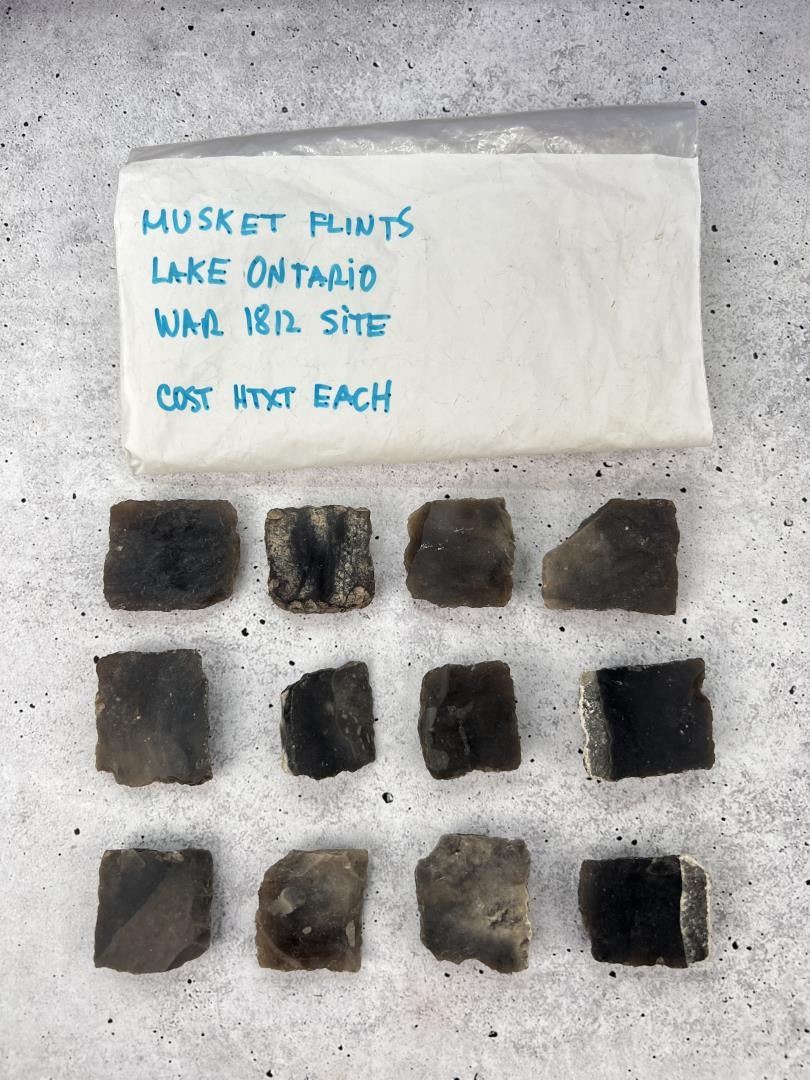 MUSKET FLINTS
LAKE ONTARIO
WAR 1812 SITE
COST HTXT EACH